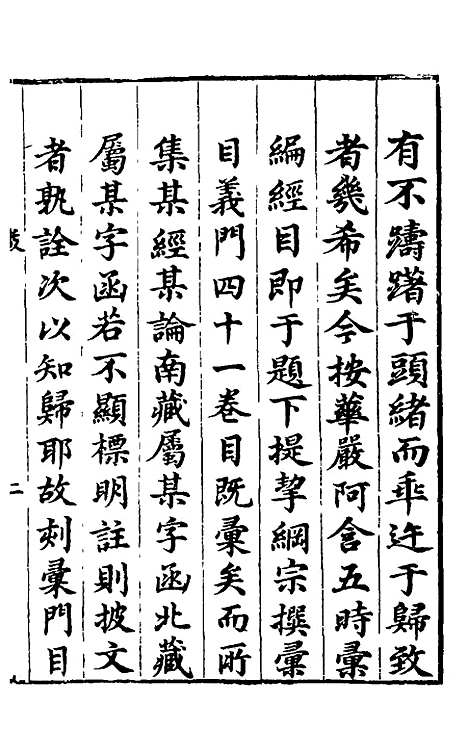 有不躊躇于頭緒而乖迕于歸致
者幾希矣今按華嚴阿含五時彙
編經目即于題下提挈綱宗撰彙
目義門四十一卷目既彙矣而所
集某經某論南藏屬某字函北藏
屬某字函若不顯標明註則披文
者孰詮次以知歸耶故刻彙門目
二